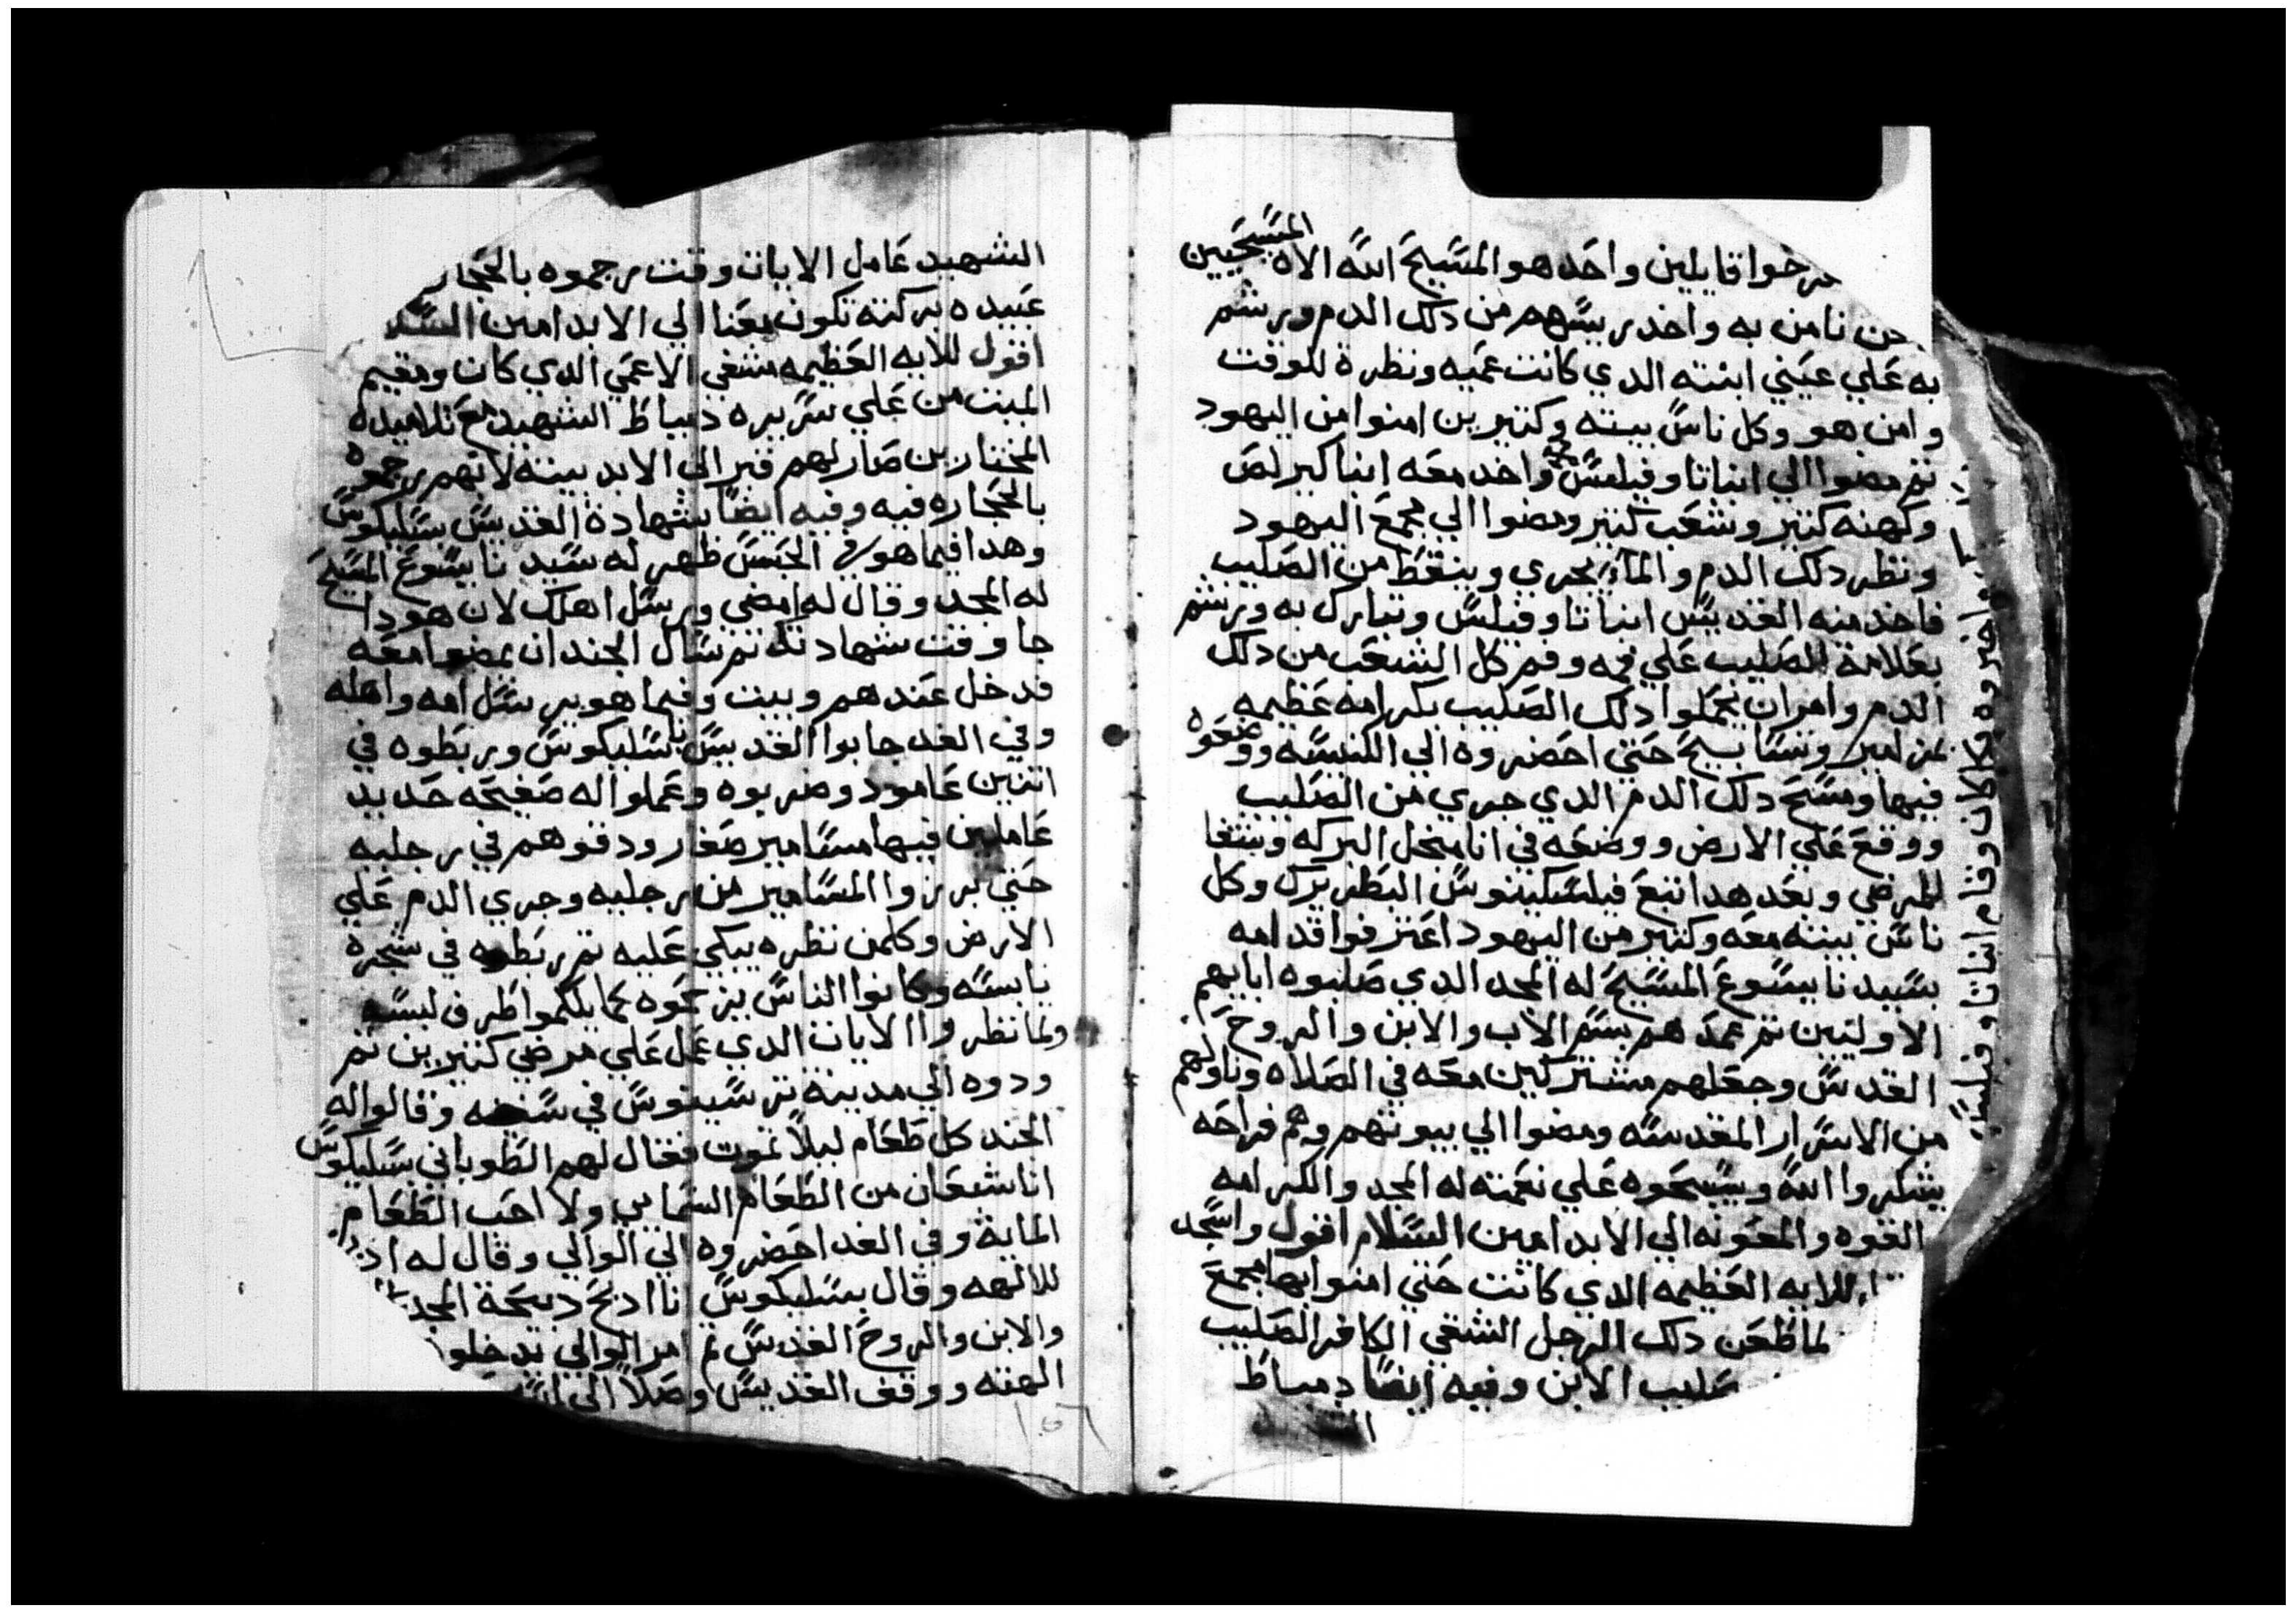 صرخوا قايلين واحد هو المسيح الله الاه المسيحيين
نحن نامن به واخد ريسهم من دلك الدم ورشم
به علي عيني ابنته الدي كانت عميه ونظرة للوقت
وامن هو وكل ناس بيته وكتيرين امنوا من اليهود
تم مضوا الي انباتاوفيلس واخد معه انبا كيرلص
وكهنه كتير وشعب كتير ومضوا الي مجمع اليهود
ونظر دلك الدم والماء يجري وينقط من الصليب
فاخد منه القديس انباتاوفيلس وتبارك به ورشم
بعلامة الصليب علي فمه وفم كل الشعب من دلك
الدم وامر ان يحملوا دلك الصليب بكرامه عظيمه
بمزامير وتسابيح حتي احضروه الي الكنيسه ووضعوه
فيها ومسح دلك الدم الدي جري من الصليب
ووقع علي الارض ووضعه في انا من اجل البركه وشفا
المرضي وبعد هدا اتبع فيلسكينوس البطريرك وكل
ناس بيته معه وكتير من اليهود اعترفوا قدامه
بسيدنا يسوع المسيح له المجد الدي صلبوه ابايهم
الاوليين تم عمدهم بسم الاب والابن والروح
القدس وجعلهم مشتركين معه في الصلاه وناولهم
من الاسرار المقدسه ومضوا الي بيوتهم وهم فراحه
يشكروا الله ويسبحوه علي نعمته له المجد والكرامه
القوه والمعونه الي الابد امين السلام اقول واسجد
للايه العظيمه الدي كانت حتي امنوا بها مجمع
لما طعن دلك الرجل الشقي الكافر الصليب
صليب الابن وفيه ايضا دمياط
احضروه مكان وقام انباتاوفيلس
الشهيد عامل الايات وقت رجموه بالحجار
عبيده بركته تكون معنا الي الابد امين السلا
اقول للايه العظيمه مشفي الاعمي الدي كان ومقيم
الميت من علي سريره دمياط الشهيد مع تلاميده
المختارين صار لهم قبر الي الابد بيته لانهم رجموه
بالحجاره فيه وفيه ايضا شهادة القديس بسليكوس
وهدا فيما هو في الحبس ظهر له سيدنا يسوع المسيح
له المجد وقال له امضي ورسل اهلك لان هودا
جا وقت شهادتك تم سال الجند ان يمضوا معه
فدخل عندهم وبيت وفيما هو يرسل امه واهله
وفي الغد جابوا القديس باسليكوس وربطوه في
اتنين عامود وضربوه وعملوا له صفيحه حديد
عاملين فيها مسامير صغار ودقوهم في رجليه
حتي برزوا المسامير من رجليه وجري الدم علي
الارض وكلمن نظره يبكي عليه تم ربطوه في شجره
يابسه وكانوا الناس يزحموه كما يلكموا طرف لبسه
ولما نظروا الايات الدي عمل علي مرضي كتيرين تم
ودوه الي مدينة ترسيفوس في سخنه وقالوا له
الجند كل طعام ليلا تموت فقال لهم الطوباني بسليكوس
انا شبعان من الطعام السماي ولا احب الطعام
المايتة وفي الغد احضروه الي الوالي وقال له ادبح
للالهه وقال بسليكوس انا ادبح دبيحة المجد
والابن والروح القدس تم امر الوالي تدخلو
الهته ووقف القديس وصلا الي